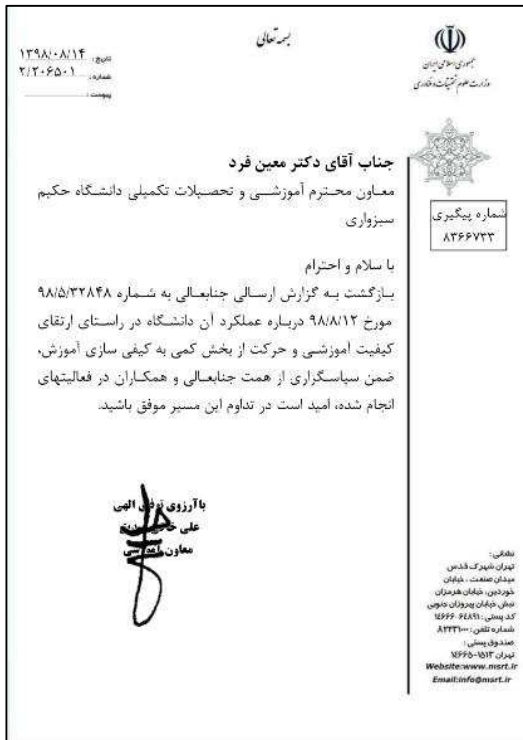 بسمه تعالی
جمهوری اسلامی ایران
وزارت علوم تحقیقات و فناوری
تاریخ: ۱۳۹۸/۰۸/۱۴
شماره: ۲/۲۰۶۵۰۱
پیوست:
شماره پیگیری
۸۳۶۶۷۳۳
جناب آقای دکتر معین فرد
معاون محترم آموزشی و تحصیلات تکمیلی دانشگاه حکیم
سبزواری
با سلام و احترام
بازگشت به گزارش ارسالی جنابعالی به شماره ۹۸/۵/۳۲۸۴۸
مورخ ۹۸/۸/۱۲ درباره عملکرد آن دانشگاه در راستای ارتقای
کیفیت آموزشی و حرکت از بخش کمی به کیفی سازی آموزش،
ضمن سپاسگزاری از همت جنابعالی و همکاران در فعالیتهای
انجام شده، امید است در تداوم این مسیر موفق باشید.
با آرزوی توفیق الهی
علی
معاون آموزشی
نشانی:
تهران شهرک قدس
میدان صنعت، خیابان
خوردین، خیابان هرمزان
نبش خیابان پیروزان جنوبی
کد پستی: ۱۴۶۶۶-۶۴۸۹۱
شماره تلفن: ۸۲۲۳۱۰۰۰
صندوق پستی:
تهران ۱۵۱۳-۱۴۶۶۵
Website:www.msrt.ir
Email:info@msrt.ir